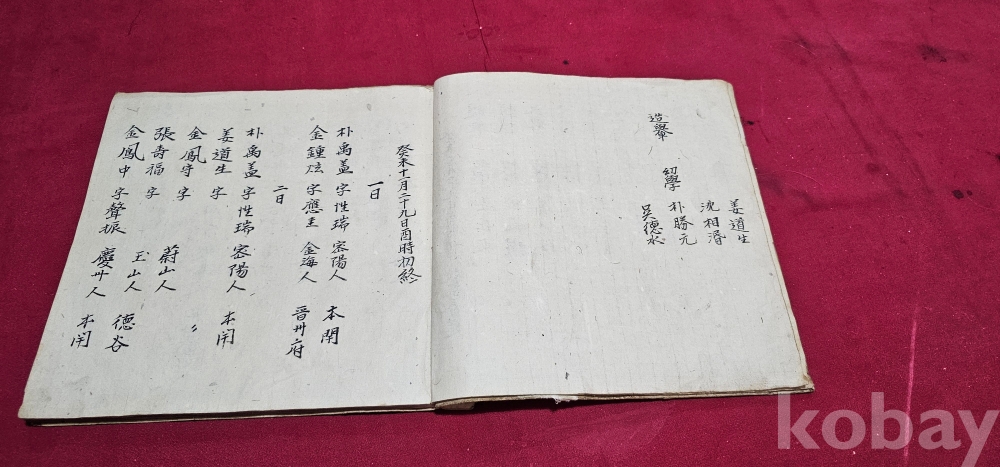 姜道生
沈相濬
幼學 朴勝元
造轝 吳德水
癸未十月二十九日酉時初終
一日
朴禹盖 字性瑞 密陽人 本閈
金鍾炫 字應圭 金海人 晋州府
二日
朴禹盖 字性瑞 密陽人 本閈
姜道生 字
金鳳守 字 〃
張壽福 字 蔚山人
玉山人 德谷
金鳳中 字聲振 慶州人 本閈
kobay